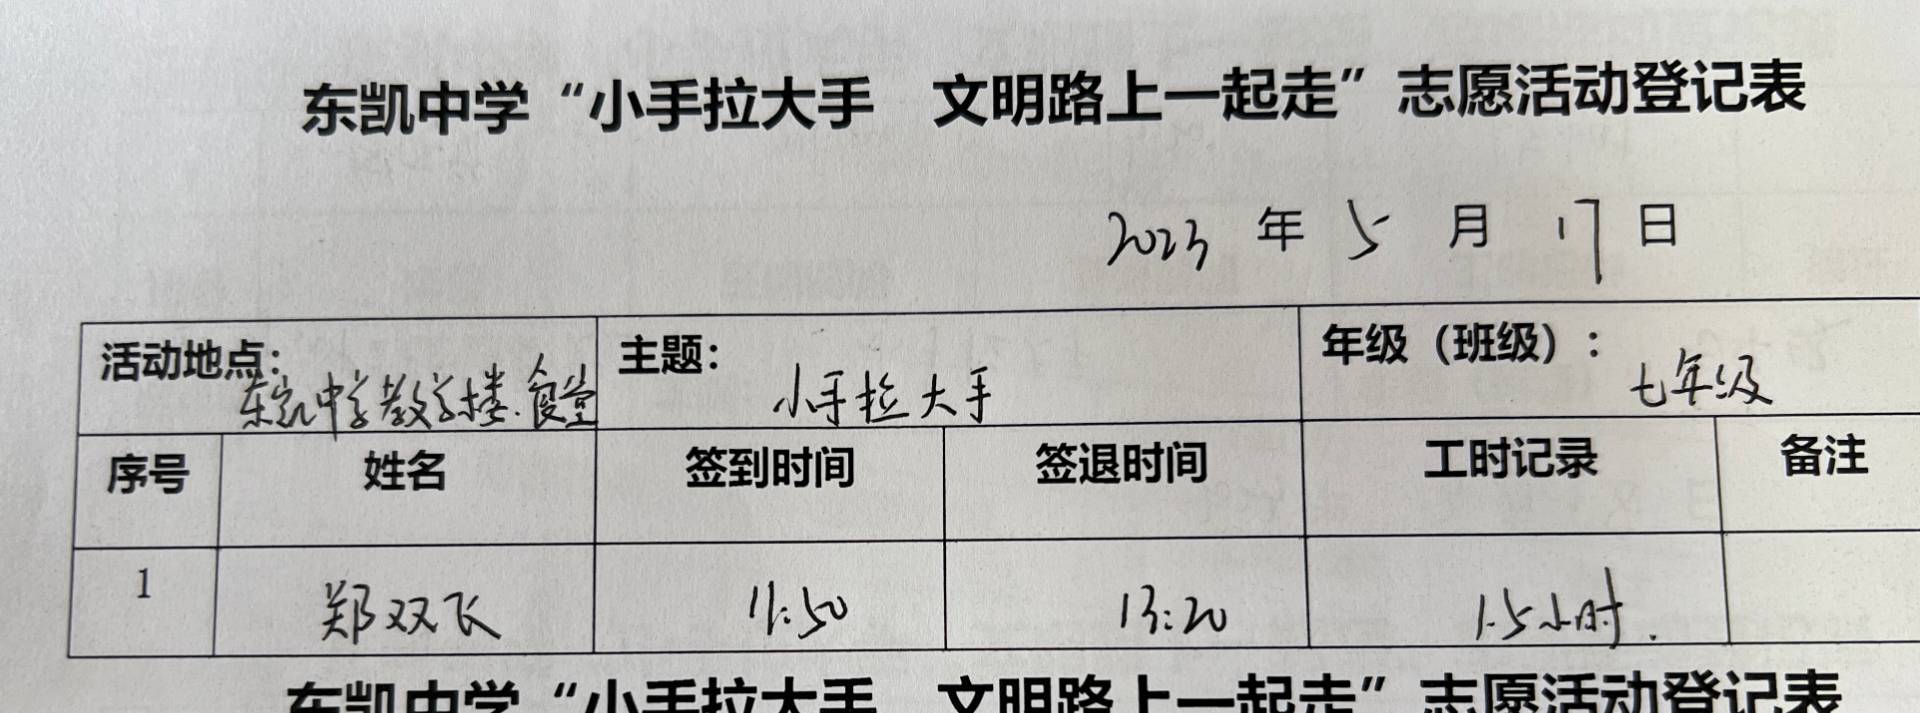 东凯中学“小手拉大手 文明路上一起走”志愿活动登记表
2023 年 5 月 17 日
活动地点：东凯中学教学楼.食堂 主题：小手拉大手 年级（班级）：七年级
序号 姓名 签到时间 签退时间 工时记录 备注
1 郑双飞 11:50 13:20 1.5小时.
东凯中学“小手拉大手 文明路上一起走”志愿活动登记表